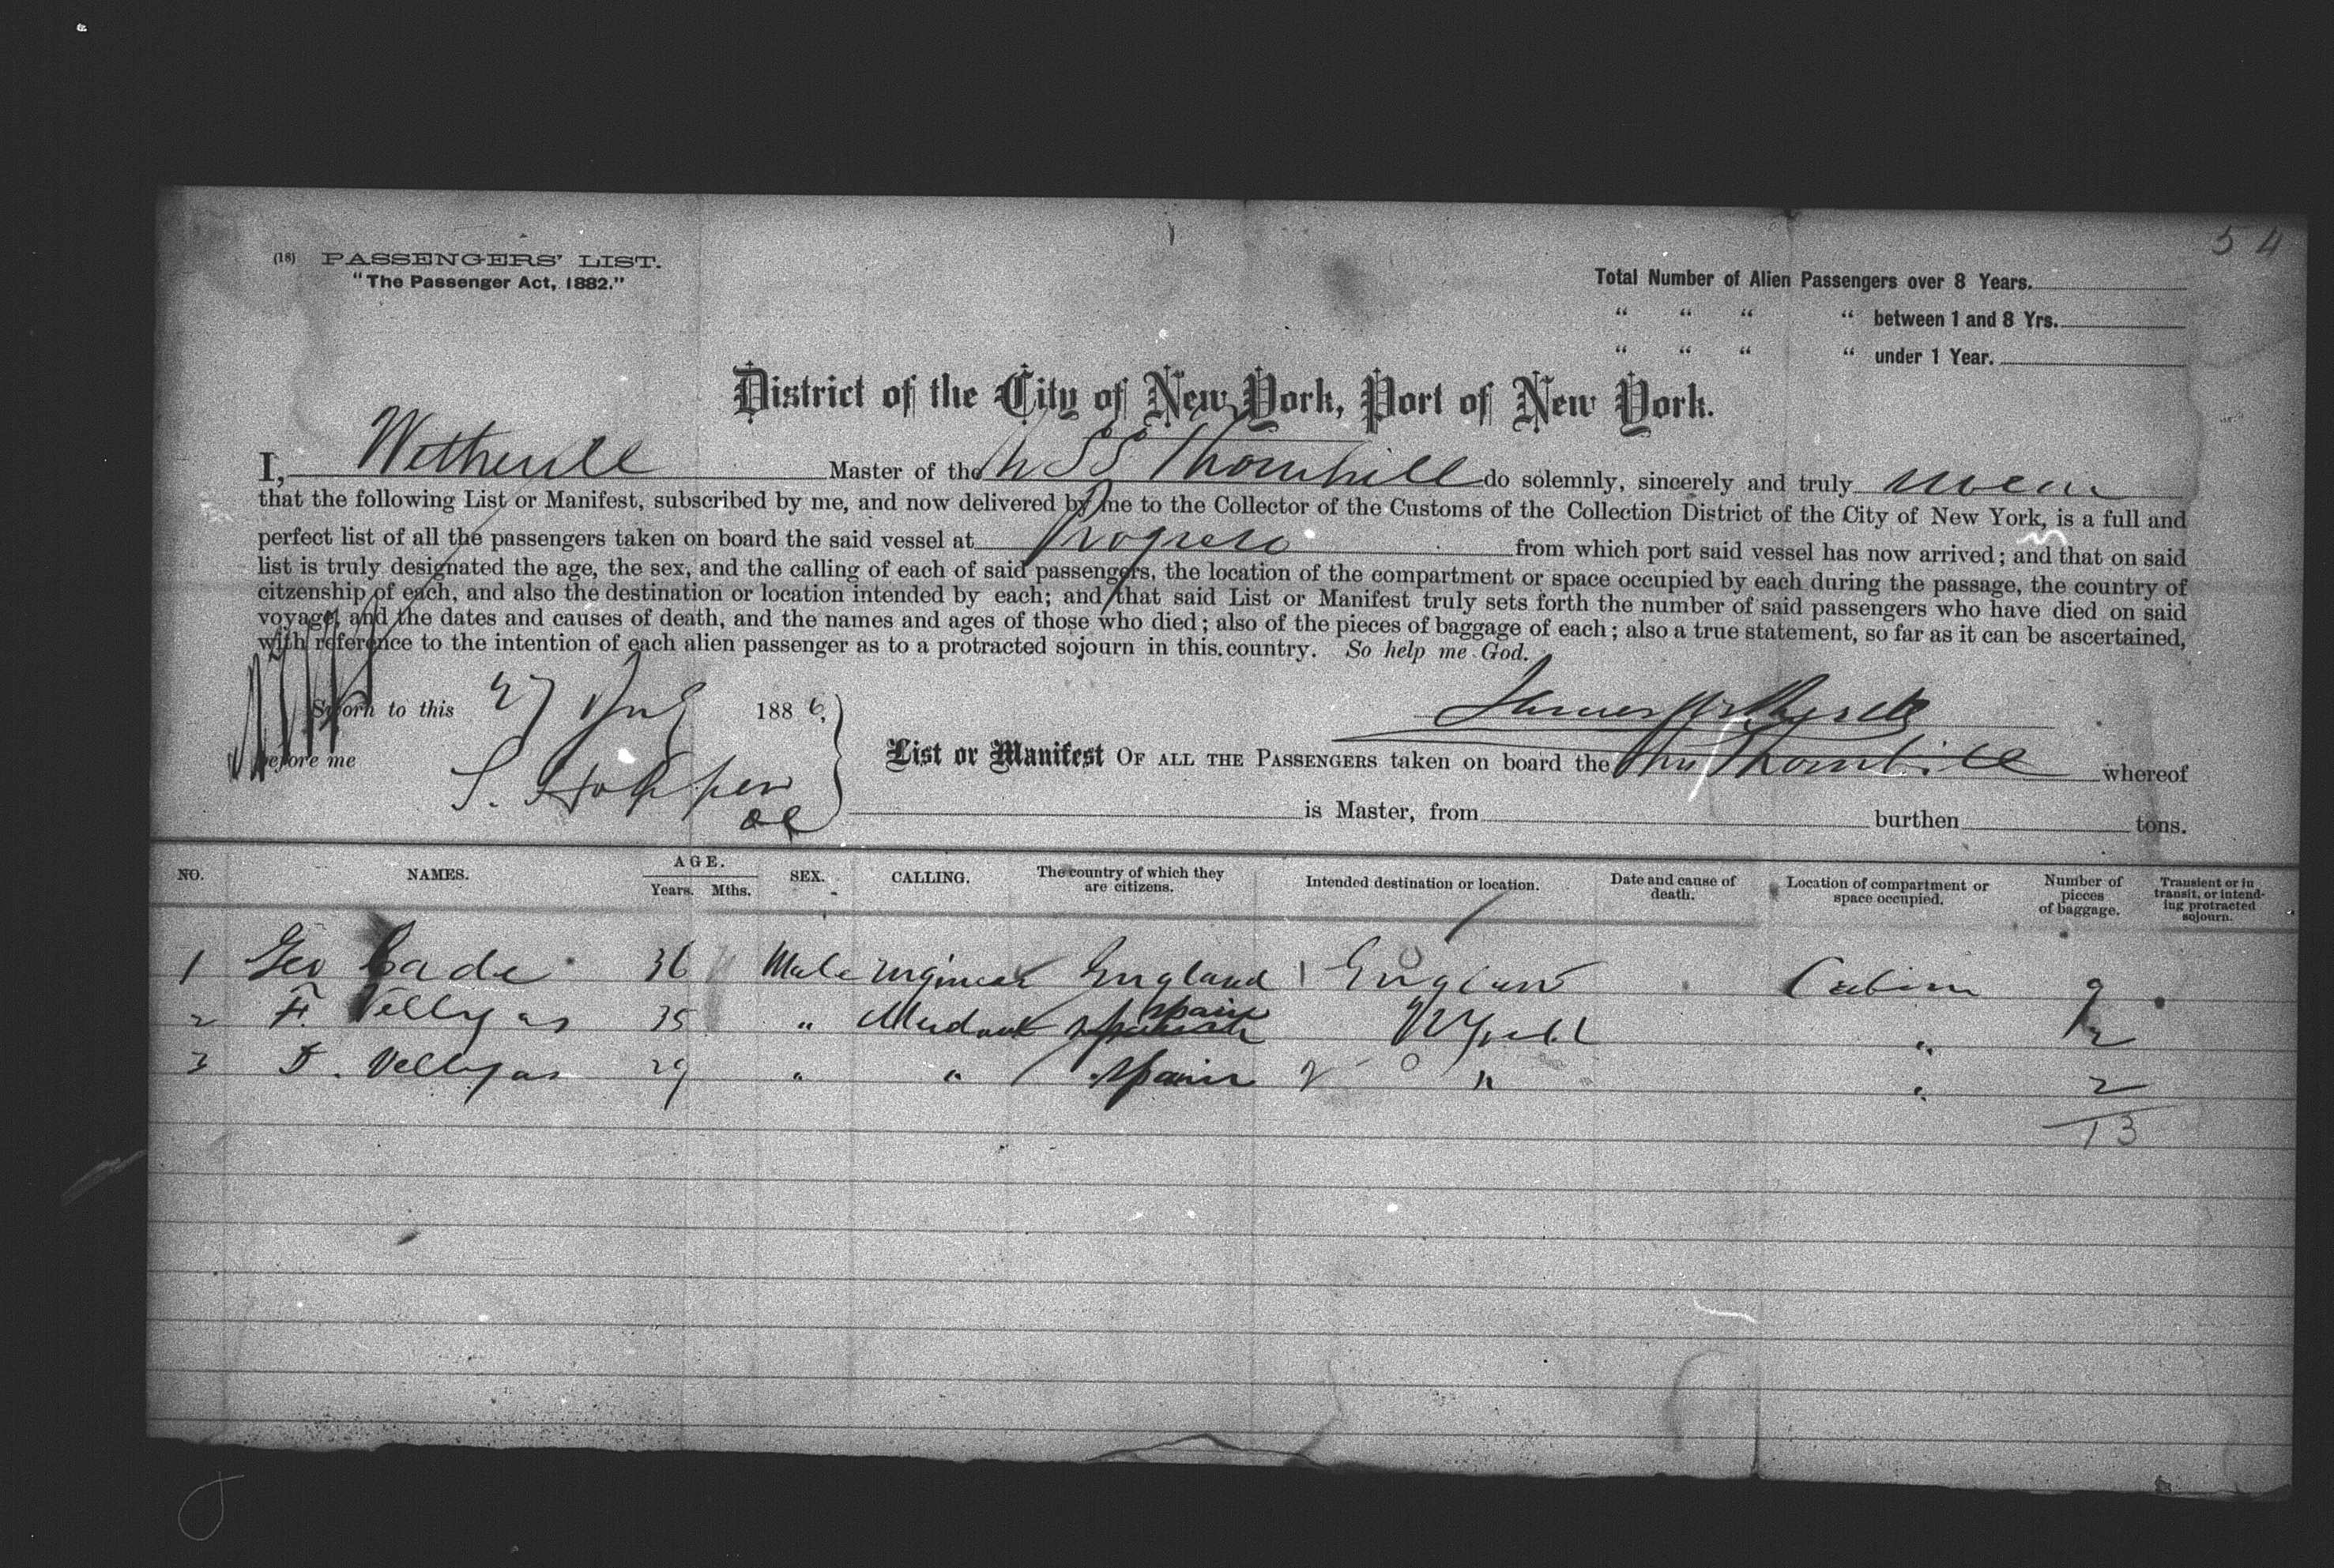 54
(18) PASSENGERS' LIST.
"The Passenger Act, 1882."
Total Number of Alien Passengers over 8 Years.
" " " " between 1 and 8 Yrs.
" " " " under 1 Year.
District of the City of New York, Port of New York.
I, Master of the SS Thornhill do solemnly, sincerely and truly swear
that the following List or Manifest, subscribed by me, and now delivered by me to the Collector of the Customs of the Collection District of the City of New York, is a full and
perfect list of all the passengers taken on board the said vessel at Progreso from which port said vessel has now arrived; and that on said
list is truly designated the age, the sex, and the calling of each of said passengers, the location of the compartment or space occupied by each during the passage, the country of
citzenship of each, and also the destination or location intended by each; and that said List or Manifest truly sets forth the number of said passengers who have died on said
voyage, and the dates and causes of death, and the names and ages of those who died; also of the pieces of baggage of each; also a true statement, so far as it can be ascertained,
with reference to the intention of each alien passenger as to a protracted sojourn in this country. So help me God.
Sworn to this 27 Aug 1886,
before me
List or Manifest OF ALL THE PASSENGERS taken on board the Thornhill whereof
is Master, from burthen tons.
NO. NAMES. AGE. Years. Mths. SEX. CALLING. The country of which they are citizens. Intended destination or location. Date and cause of death. Location of compartment or space occupied. Number of pieces of baggage. Transient or in transit, or intending protracted sojourn.
1 Geo Cade 36 Male Engineer England 1 England Cabin 9
2 F. 35 " Spain N York " 2
3 29 " " Spain 2 " " 2
13